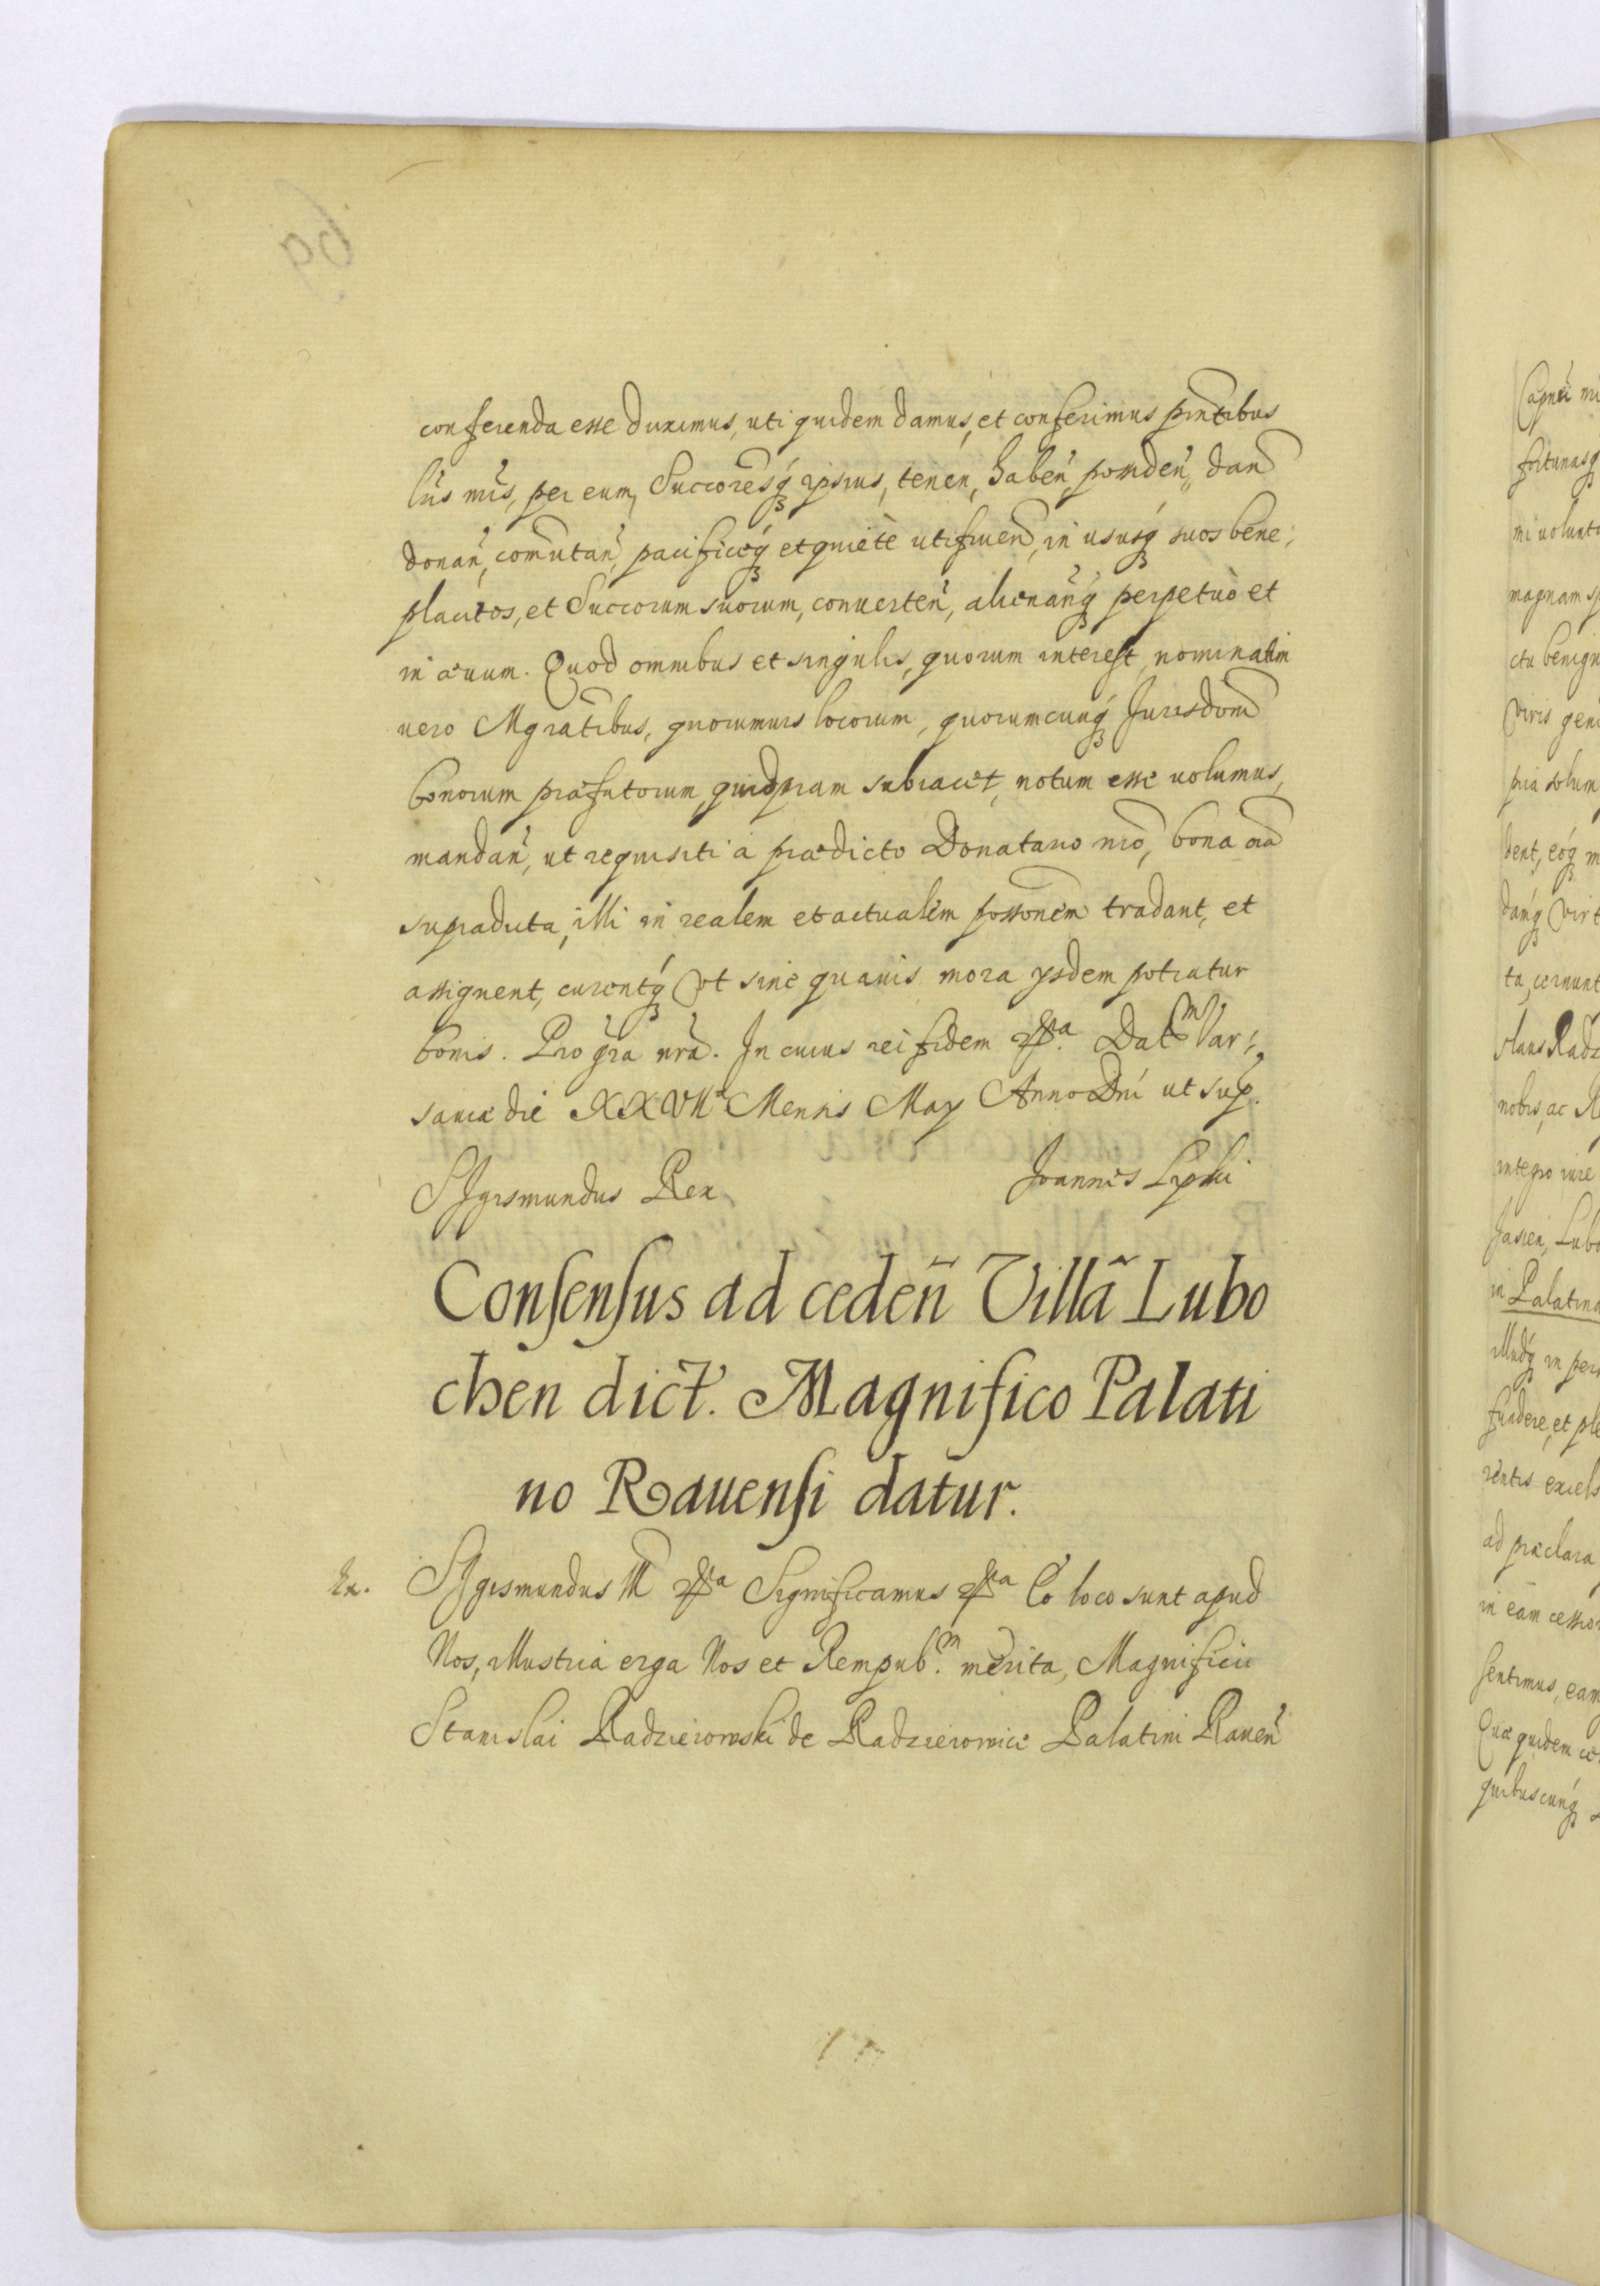 conferenda esse duximus, uti quidem damus, et conferimus pñtibus
lris nris, per eum, Succoresq́ ipsius, tenen̄, haben̄, possiden̄, dan̄
donan̄, com̃utan̄, pacificeq́ et quietè utifruen̄, in ususq́ suos bene-
placitos, et Succorum suorum, conuerten̄, alienan̄q́ perpetuò et
in æuum. Quod omnibus et singulis, quorum interest, nominatim
uero Mgratibus, quorumuis locorum, quorumcunq́ Jurisdoni
bonorum præfatorum quidpiam subiacet, notum esse uolumus,
mandan̄, ut requisiti a prædicto Donatario nro, bona oia
supradicta, illi in realem et actualem possonem tradant, et
assignent, curentq́ Vt sine quauis mora ysdem potiatur
bonis. Pro gra̅ nra̅. In cuius rei fidem &a. Datm Var-
sauiæ die XXVIIa Mensis May Anno Dni ut sup.
SIgismundus Rex
Joannes Lipski
Consensus ad ceden̄ Villã Lubo
chen dict. Magnifico Palati
no Rauensi datur.
Ex.
SIgismundus III &a Significamus &a Eo loco sunt apud
Nos, illustria erga Nos et Rempub.m merita, Magnifici
Stanislai Radzieiowski de Radzieiowice Palatini Rauen̄
69
Capnei
fortunasq́
mi uolunt
magnam
ctu benign
Viris gen
pria solum
dent, eoq́ m
danq́ Virt
ta, cernunt
slaus Radz
nobis, ac R
integro iure
Jasien, Lubo
in Palatina
illudq́ in per
suadere, et ple
rentis excels
ad præclara
in eam cessio
sentimus, eam
Quæ quidem ce
quibuscunq́